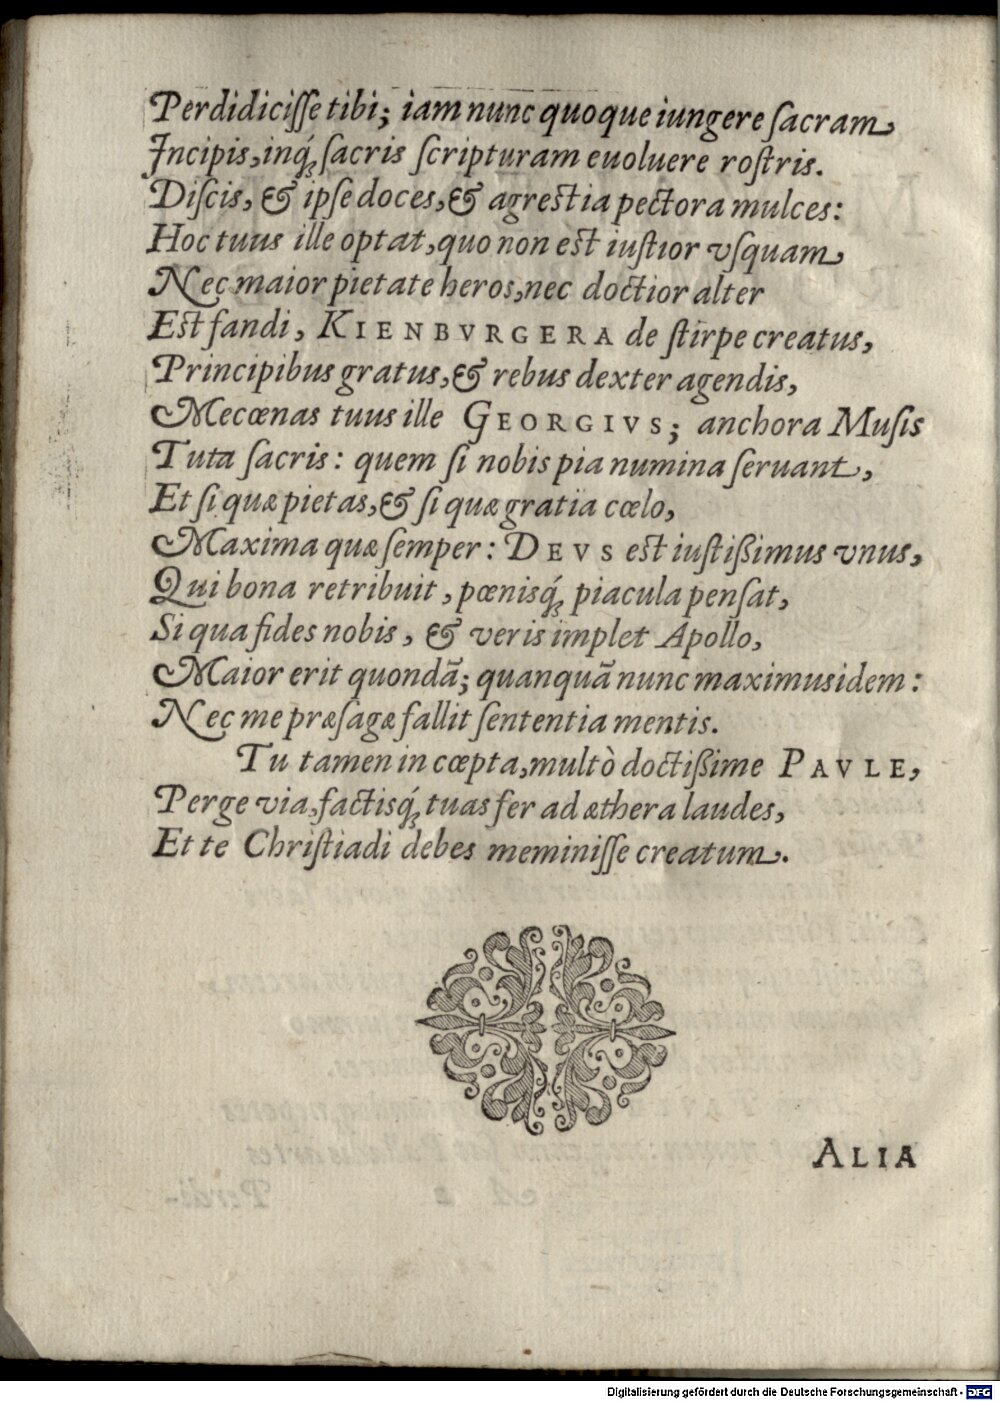 Perdidiciſſe tibi; iam nunc quoque iungere ſacram
Incipis, inq́ꝫ ſacris ſcripturam euoluere roſtris.
Diſcis, & ipſe doces, & agreſtia pectora mulces:
Hoc tuus ille optat, quo non eſt iuſtior vſquam
Nec maior pietate heros, nec doctior alter
Eſt fandi, KIENBVRGERA de ſtirpe creatus,
Principibus gratus, & rebus dexter agendis,
Mecœnas tuus ille GEORGIVS; anchora Muſis
Tuta ſacris: quem ſi nobis pia numina ſeruant,
Et ſi quæ pietas, & ſi quæ gratia cœlo,
Maxima quæ ſemper: DEVS eſt iuſtißimus vnus,
Qui bona retribuit, pœnisq́ꝫ piacula penſat,
Si qua fides nobis, & veris implet Apollo,
Maior erit quondã; quanquã nunc maximus idem:
Nec me præſagæ fallit ſententia mentis.
Tu tamen in cœpta, multò doctißime PAVLE,
Perge via, factisq́ꝫ tuas fer ad æthera laudes,
Et te Chriſtiadi debes meminiſſe creatum.
ALIA
Digitalisierung gefördert durch die Deutsche Forschungsgemeinschaft - DFG